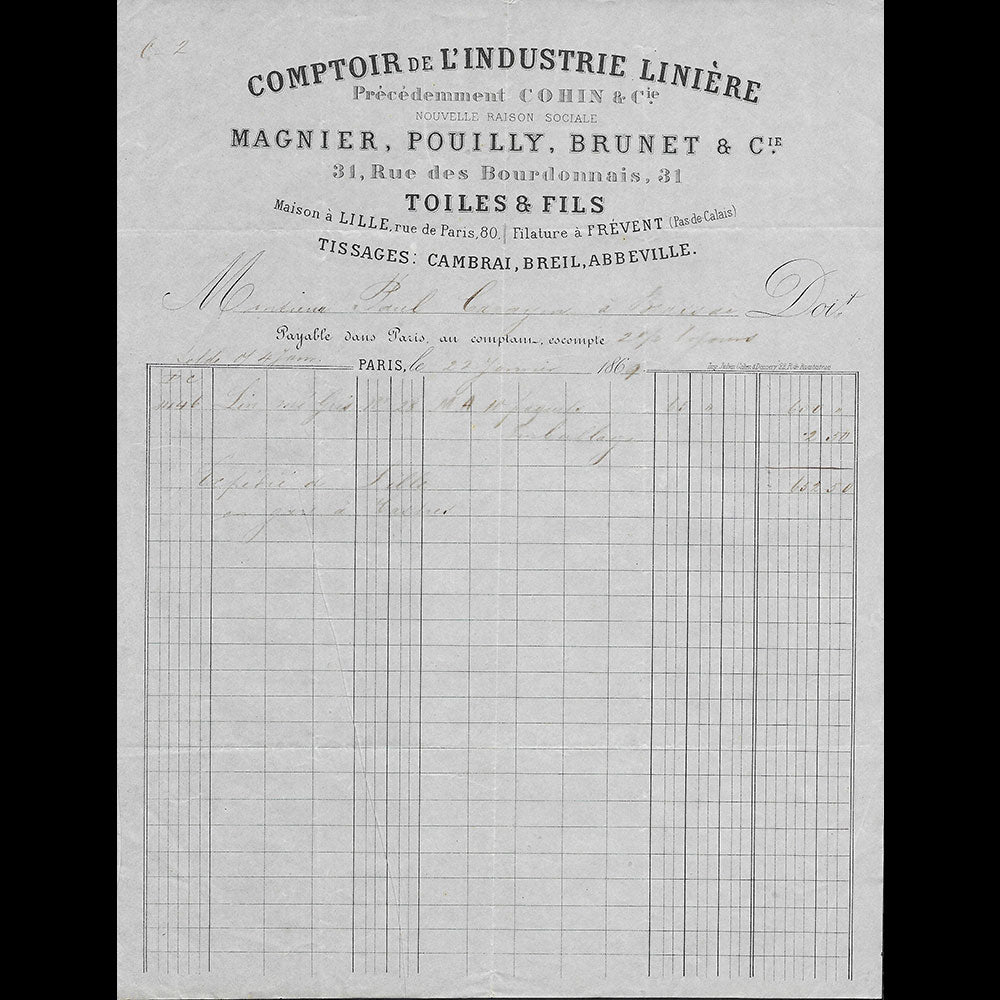 COMPTOIR DE L'INDUSTRIE LINIÈRE
Précédemment COHIN & Cie
NOUVELLE RAISON SOCIALE
MAGNIER, POUILLY, BRUNET & CIE
31, Rue des Bourdonnais, 31
TOILES & FILS
Maison à LILLE, rue de Paris, 80. Filature à FRÉVENT (Pas de Calais)
TISSAGES: CAMBRAI, BREIL, ABBEVILLE.
Monsieur Paul à Doit
Payable dans Paris, au comptant, escompte 2%
PARIS, le 22 Janvier 1869
Lin Gris No 28 10 paquets 65 " 650 "
Emballage 2 50
652 50
Expédié de Lille
en gare à